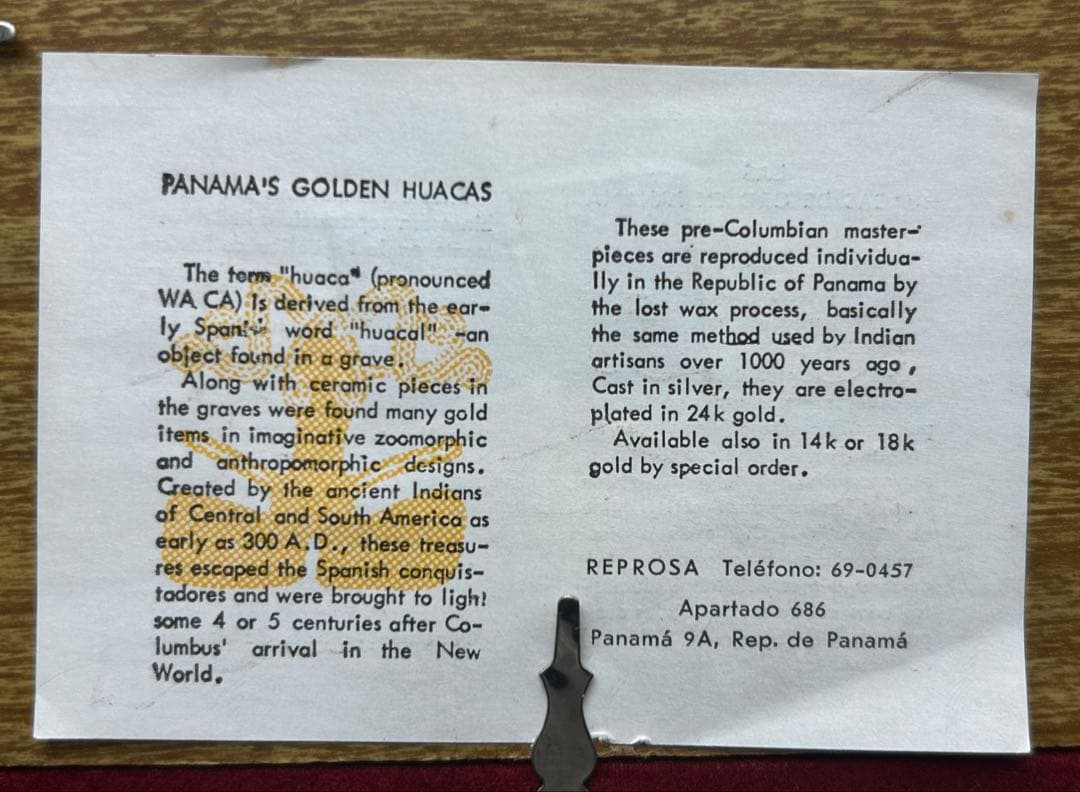 PANAMA'S GOLDEN HUACAS
The term "huaca" (pronounced
WA CA) is derived from the ear-
ly Spanish word "huacal" -an
object found in a grave.
Along with ceramic pieces in
the graves were found many gold
items in imaginative zoomorphic
and anthropomorphic designs.
Created by the ancient Indians
of Central and South America as
early as 300 A.D., these treasu-
res escaped the Spanish conquis-
tadores and were brought to light
some 4 or 5 centuries after Co-
lumbus' arrival in the New
World.
These pre-Columbian master-
pieces are reproduced individua-
lly in the Republic of Panama by
the lost wax process, basically
the same method used by Indian
artisans over 1000 years ago,
Cast in silver, they are electro-
plated in 24k gold.
Available also in 14k or 18k
gold by special order.
REPROSA Teléfono: 69-0457
Apartado 686
Panamá 9A, Rep. de Panamá